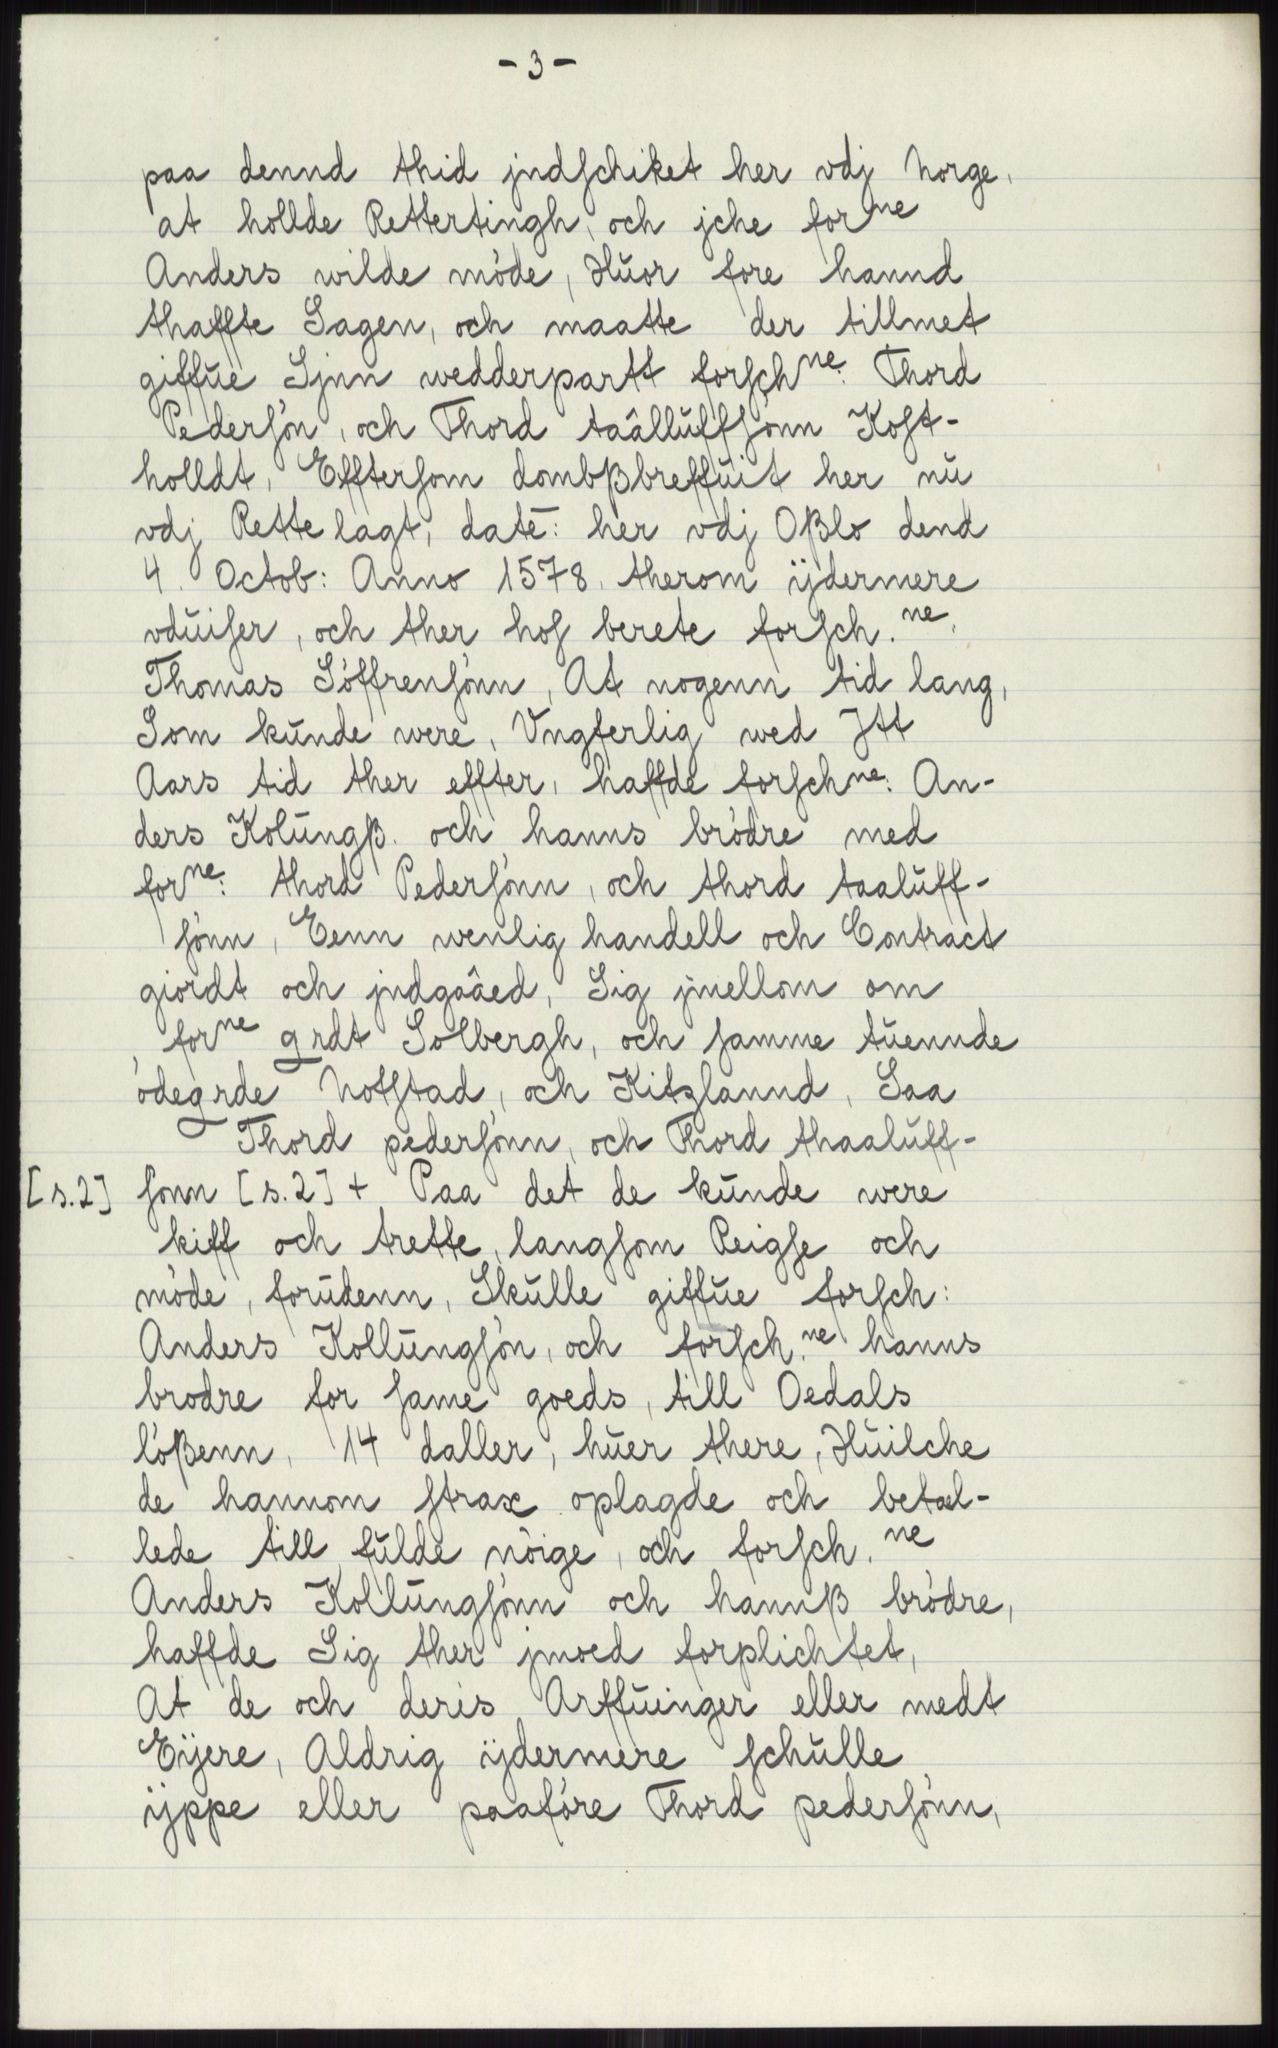 - 3 -
paa dennd thid jndschiket her vdj Norge,
at hollde Rettertingh, och jche forne
Anders wilde möde, Huor fore hannd
thaffte Sagen, och maatte der tillmet
giffue Sjnn wedderpartt forschne: Thord
Pedersön, och Thord taâlluffsönn Kost-
holldt, Efftersom dombßbreffuit her nu
vdj Rette lagt, datē: her vdj Oßlo dend
4. Octob: Anno 1578. therom ÿdermere
vduiser, och ther hos berete forsch.ne.
Thomas Söffrensönn, At nogenn tid lang,
Som kunde were, Vngferlig wed Jtt
Aars tid ther effter, haffde forschne: An-
ders Kolungß. och hanns brödre med
forne: thord Pedersönn, och thord taaluff-
sönn, Eenn wenlig handell och Contract
giordt och jndgaâed, Sig jmellom om
forne grdt Solbergh, och samme tuennde
ödegrde Notstad, och Kitzlannd, Saa
Thord pedersönn, och Thord thaaluff-
[s.2] sonn [s.2] + Paa det de kunde were
kiff och trette, langsom Reigse och
möde, forudenn, Skulle giffue forsch:
Anders Kollungsön, och forsch.ne hanns
brodre for same goeds, till Oedals
lößenn, 14 daller, huer there, Huilche
de hannom strax oplagde och betal-
lede till fulde nöige, och forsch.ne
Anders Kollungsönn och hannß brödre,
haffde Sig ther jmoed forplichtet,
At de och deris Arffuinger eller medt
Eÿere, Aldrig ÿdermere schulle
ÿppe eller paaföre Thord pedersönn,